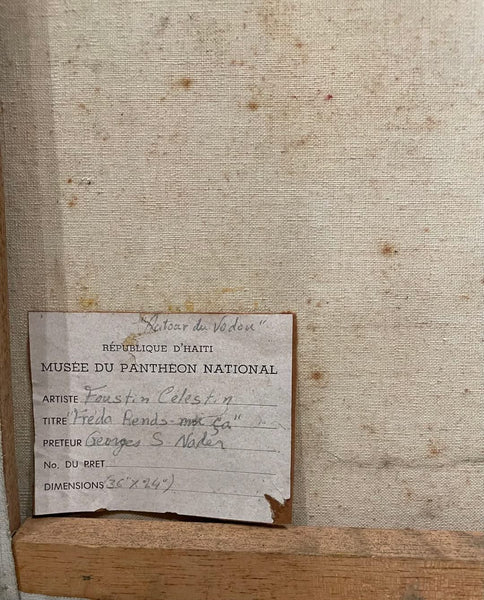 "Autour du Vodou"
RÉPUBLIQUE D'HAITI
MUSÉE DU PANTHÉON NATIONAL
ARTISTE Foustin Célestin
TITRE "Fréda Rends moi ça"
PRETEUR Georges S. Nader
No. DU PRET
DIMENSIONS (36"X24")